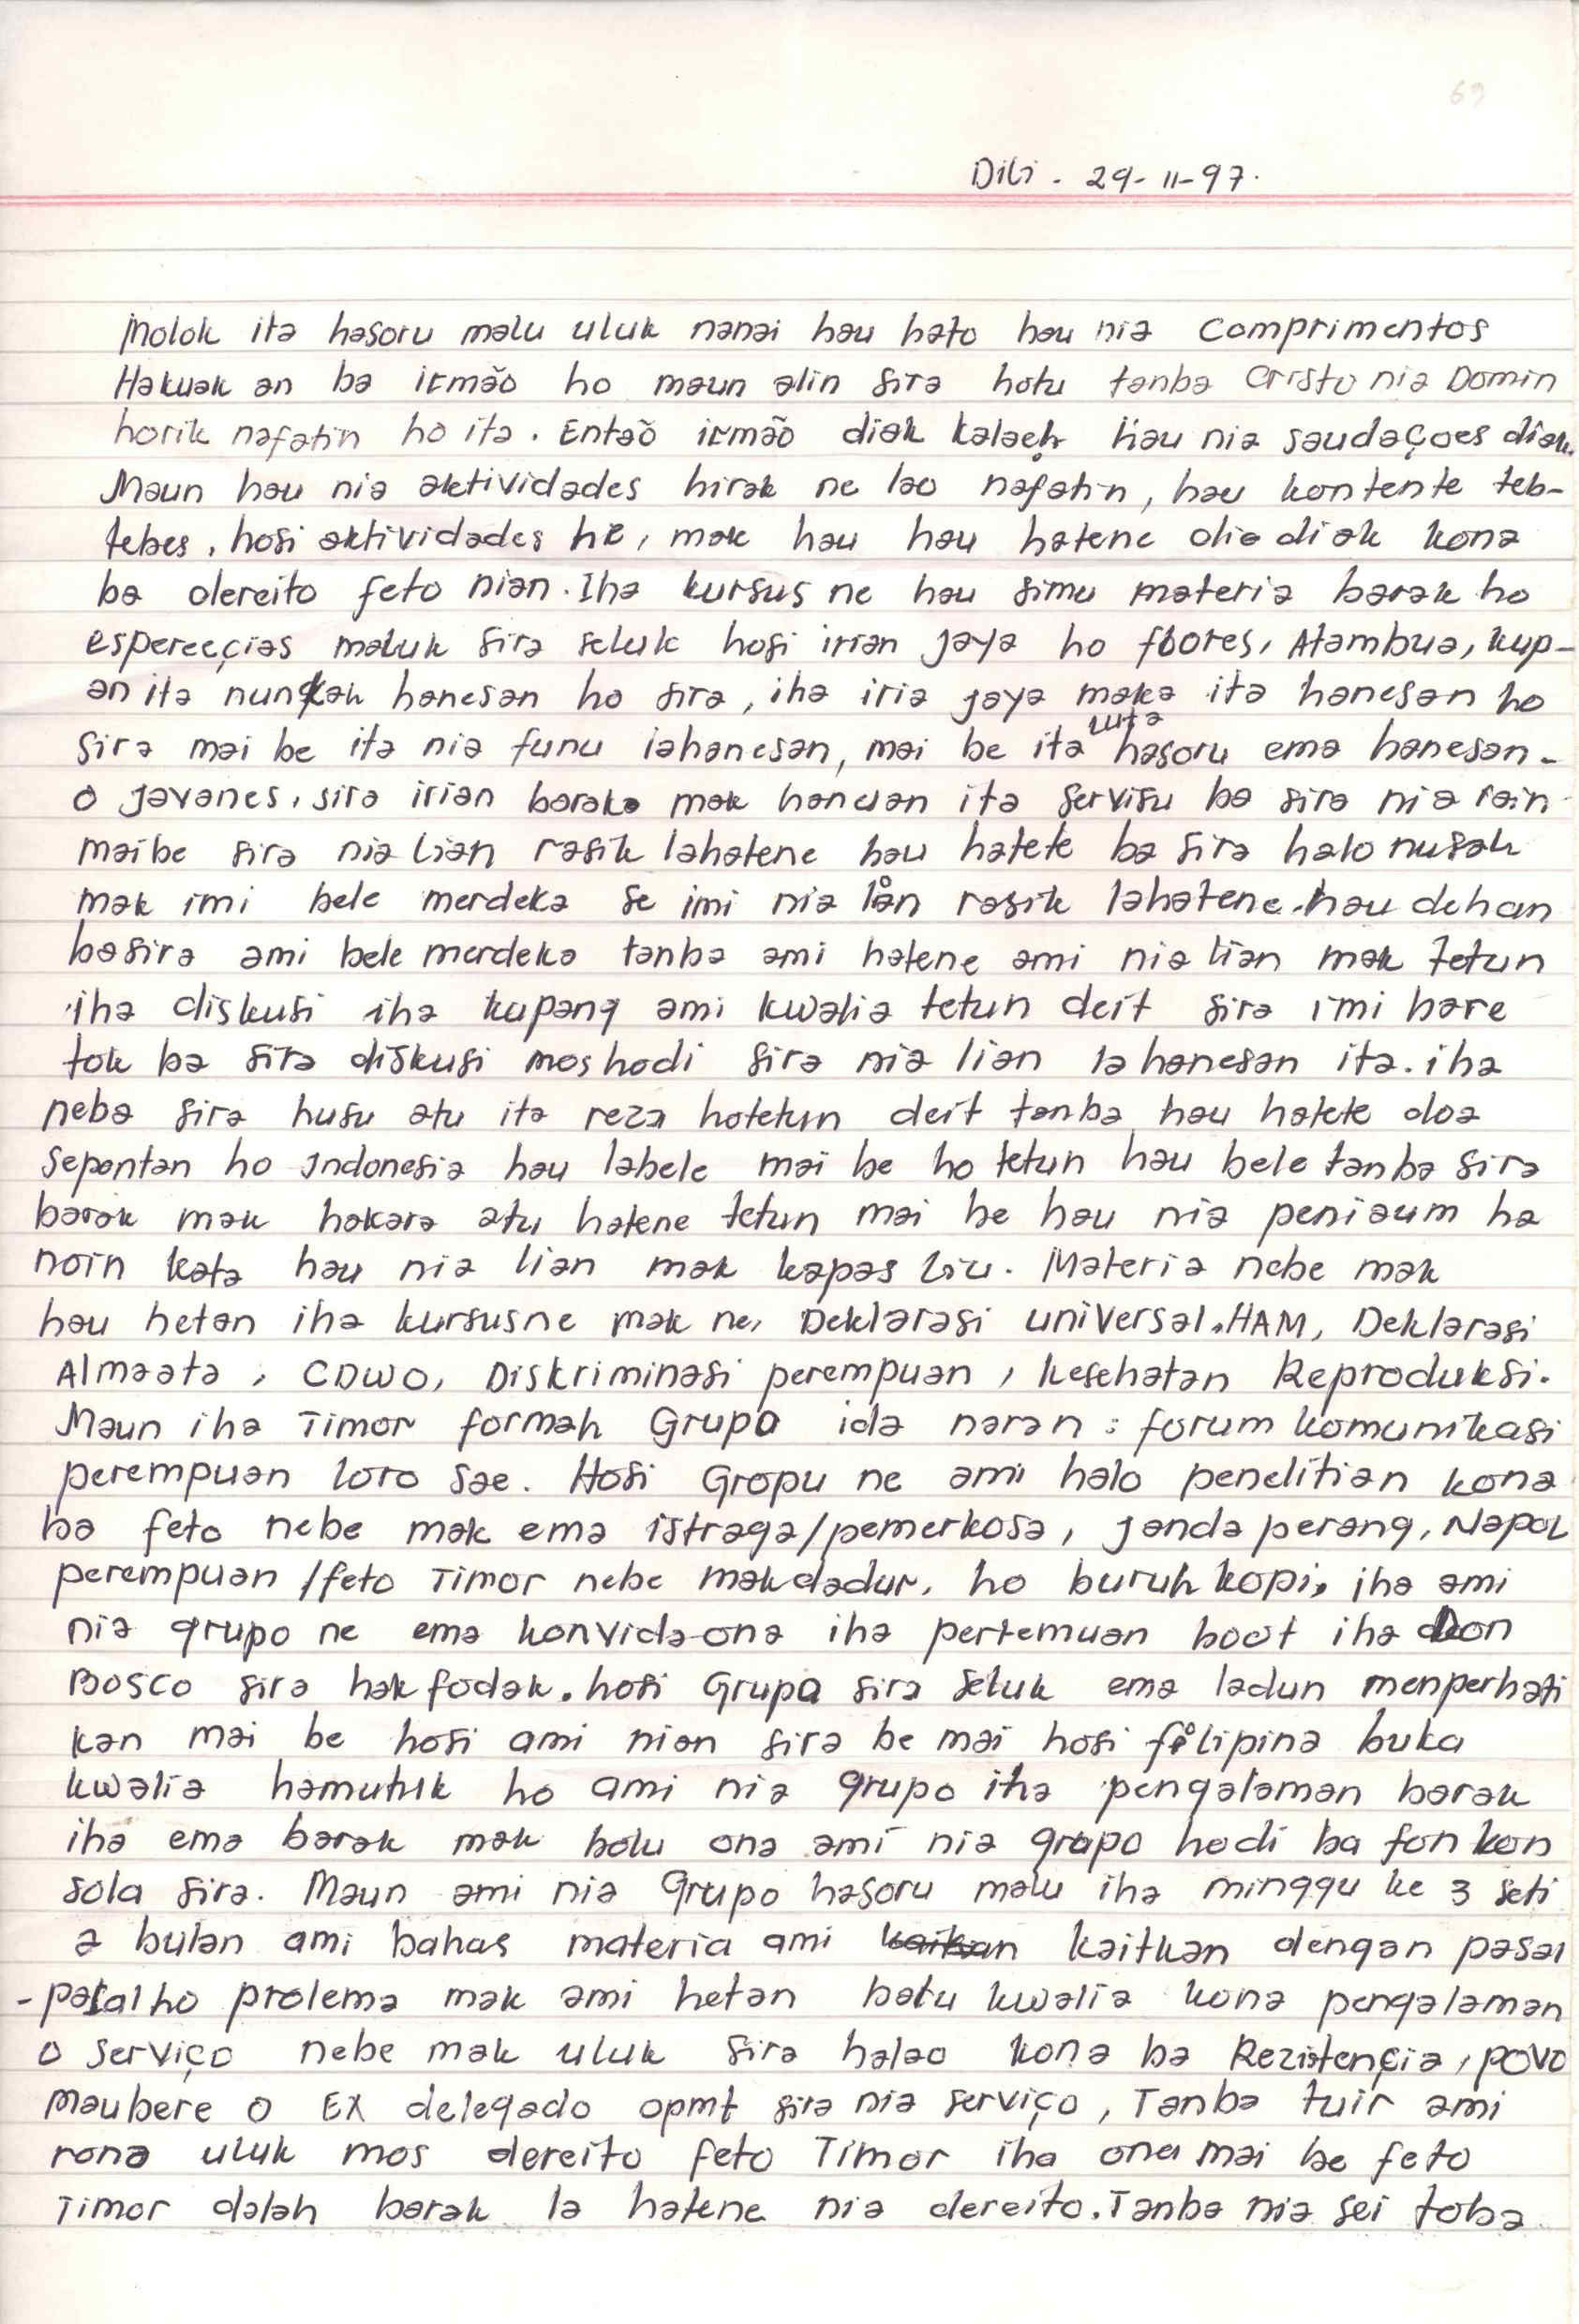 69
Dili - 29-11-97.
Molok ita hasoru malu uluk nanai hau hato hau nia comprimentos
Hakuak an ba irmão ho maun alin sira hotu tanba Cristo nia Domin
horik nafatin ho ita. Entaõ irmão diak kalaeh hau nia saudaçoes diak.
Maun hau nia aktividades hirak ne lao nafatin, hau kontente teb-
tebes, hosi aktividades ne, mak hau hau hatene dia diak kona
ba dereito feto nian. Iha kursus ne hau simu materia barak ho
espereeçias maluk sira seluk hosi irian jaya ho flores, Atambua, kup-
an ita nunkah hanesan ho sira, iha iria jaya maka ita hanesan ho
sira mai be ita nia funu lahanesan, mai be ita luta hasoru ema hanesan-
o javanes, sira irian barak mak hanesan ita servisu ba sira nia rain
maibe sira nia lian rasik lahatene hau hatete ba sira halo nusah
mak imi bele merdeka se imi nia lian rasik lahatene. hau dehan
basira ami bele merdeka tanba ami hatene ami nia lian mak tetun
iha diskusi iha kupang ami kwalia tetun deit sira imi hare
tok ba sira diskusi mos hodi sira nia lian la hanesan ita. iha
neba sira husu atu ita reza hotetun deit tanba hau hatete doa
sepontan ho Indonesia hau labele mai be ho tetun hau bele tanba sira
barak mak hakara atu hatene tetun mai be hau nia peniaum ha
noin kata hau nia lian mak kapas liu. Materia nebe mak
hau hetan iha kursusne mak ne, Deklarasi universal.HAM, Deklarasi
Almaata, CDWO, Diskriminasi perempuan, kesehatan Reproduksi.
Maun iha Timor formah Grupo ida naran : forum komunikasi
perempuan loro sae. Hosi Gropu ne ami halo penelitian kona
ba feto nebe mak ema istraga/pemerkosa, janda perang, Napol
perempuan /feto Timor nebe makdadur, ho buruh kopi, iha ami
nia grupo ne ema konvida-ona iha pertemuan boot iha Don
Bosco sira hakfodak. hosi Grupo sira seluk ema ladun menperhati
kan mai be hosi ami nian sira be mai hosi filipina buka
kwalia hamutuk ho ami nia grupo iha pengalaman barak
iha ema barak mak bolu ona ami nia grupo hodi ba fon kon
sola sira. Maun ami nia Grupo hasoru malu iha minggu ke 3 seti
a bulan ami bahas materia ami kaikan kaitkan dengan pasal
-pasal ho prolema mak ami hetan batu kwalia kona pengalaman
o serviço nebe mak uluk sira halao kona ba Rezistençia, povo
maubere o EX delegado opmt sira nia serviço, Tanba tuir ami
rona uluk mos dereito feto Timor iha ona mai be feto
Timor dalah barak la hatene nia dereito. Tanba nia sei toba